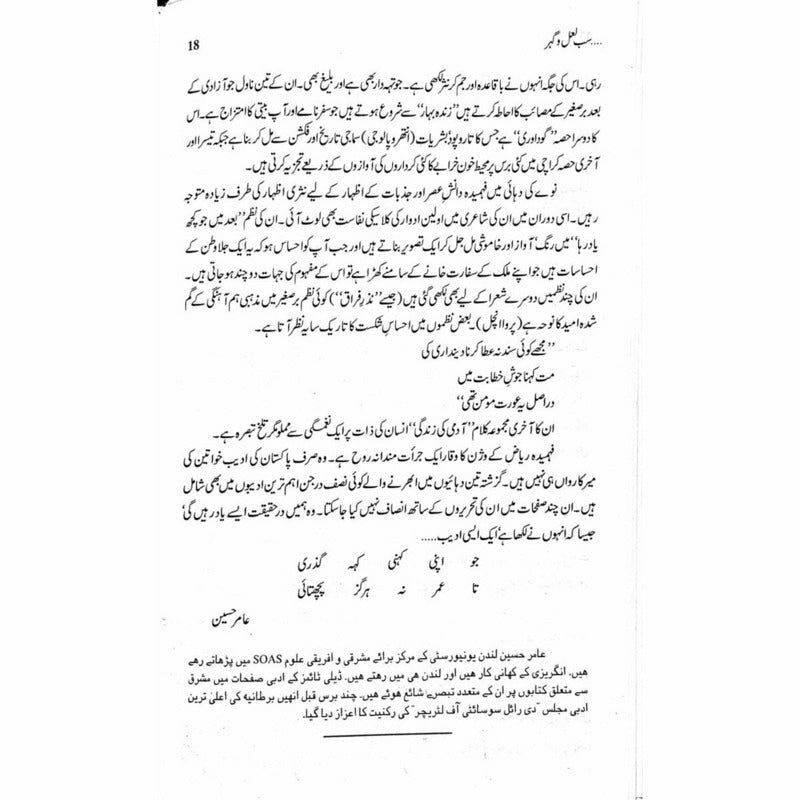 ....سب لعل و گہر
18
رہی۔ اس کی جگہ انہوں نے باقاعدہ اور جم کر نثر لکھی ہے۔ جو تہہ دار بھی ہے اور بلیغ بھی۔ ان کے تین ناول جو آزادی کے
بعد برصغیر کے مصائب کا احاطہ کرتے ہیں ”زندہ بہار“ سے شروع ہوتے ہیں جو سفر نامے اور آپ بیتی کا امتزاج ہے۔ اس
کا دوسرا حصہ ”گوداوری“ ہے جس کا تاروپود بشریات (انتھروپالوجی) سماجی تاریخ اور فکشن سے مل کر بنا ہے جبکہ تیسرا اور
آخری حصہ کراچی میں کئی برس پر محیط خون خرابے کا کئی کرداروں کی آوازوں کے ذریعے تجزیہ کرتی ہیں۔
نوے کی دہائی میں فہمیدہ دانشِ عصر اور جذبات کے اظہار کے لیے نثری اظہار کی طرف زیادہ متوجہ
رہیں۔ اسی دوران میں ان کی شاعری میں اولین ادوار کی کلاسیکی نفاست بھی لوٹ آئی۔ ان کی نظم ”بعد میں جو کچھ
یاد رہا“ میں رنگ، آواز اور خاموشی مل جل کر ایک تصویر بناتے ہیں اور جب آپ کو احساس ہو کہ یہ ایک جلاوطن کے
احساسات ہیں جو اپنے ملک کے سفارت خانے کے سامنے کھڑا ہے تو اس کے مفہوم کی جہات دوچند ہو جاتی ہیں۔
ان کی چند نظمیں دوسرے شعرا کے لیے بھی لکھی گئی ہیں (جیسے ”نذرِ فراق“) کوئی نظم برصغیر میں مذہبی ہم آہنگی کے گم
شدہ امید کا نوحہ ہے (پروا آنچل)۔ بعض نظموں میں احساسِ شکست کا تاریک سایہ نظر آتا ہے۔
”مجھے کوئی سند نہ عطا کرنا دینداری کی
مت کہنا جوشِ خطابت میں
دراصل یہ عورت مومن تھی“
ان کا آخری مجموعہ کلام ”آدمی کی زندگی“ انسان کی ذات پر ایک نغمگی سے مملو مگر تلخ تبصرہ ہے۔
فہمیدہ ریاض کے وژن کا وقار ایک جرأت مندانہ روح ہے۔ وہ صرف پاکستان کی ادیب خواتین کی
میرِ کارواں ہی نہیں ہیں۔ گزشتہ تین دہائیوں میں ابھرنے والے کوئی نصف درجن اہم ترین ادیبوں میں بھی شامل
ہیں۔ ان چند صفحات میں ان کی تحریروں کے ساتھ انصاف نہیں کیا جا سکتا۔ وہ ہمیں درحقیقت ایسے یاد رہیں گی،
جیسا کہ انہوں نے لکھا ہے ایک ایسی ادیب.....
جو اپنی کہنی کہہ گذری
تا عمر نہ ہرگز پچھتائی
عامر حسین
عامر حسین لندن یونیورسٹی کے مرکز برائے مشرقی و افریقی علوم SOAS میں پڑھاتے رہے
ہیں۔ انگریزی کے کہانی کار ہیں اور لندن ہی میں رہتے ہیں۔ ڈیلی ٹائمز کے ادبی صفحات میں مشرق
سے متعلق کتابوں پر ان کے متعدد تبصرے شائع ہوئے ہیں۔ چند برس قبل انہیں برطانیہ کی اعلیٰ ترین
ادبی مجلس ”دی رائل سوسائٹی آف لٹریچر“ کی رکنیت کا اعزاز دیا گیا۔